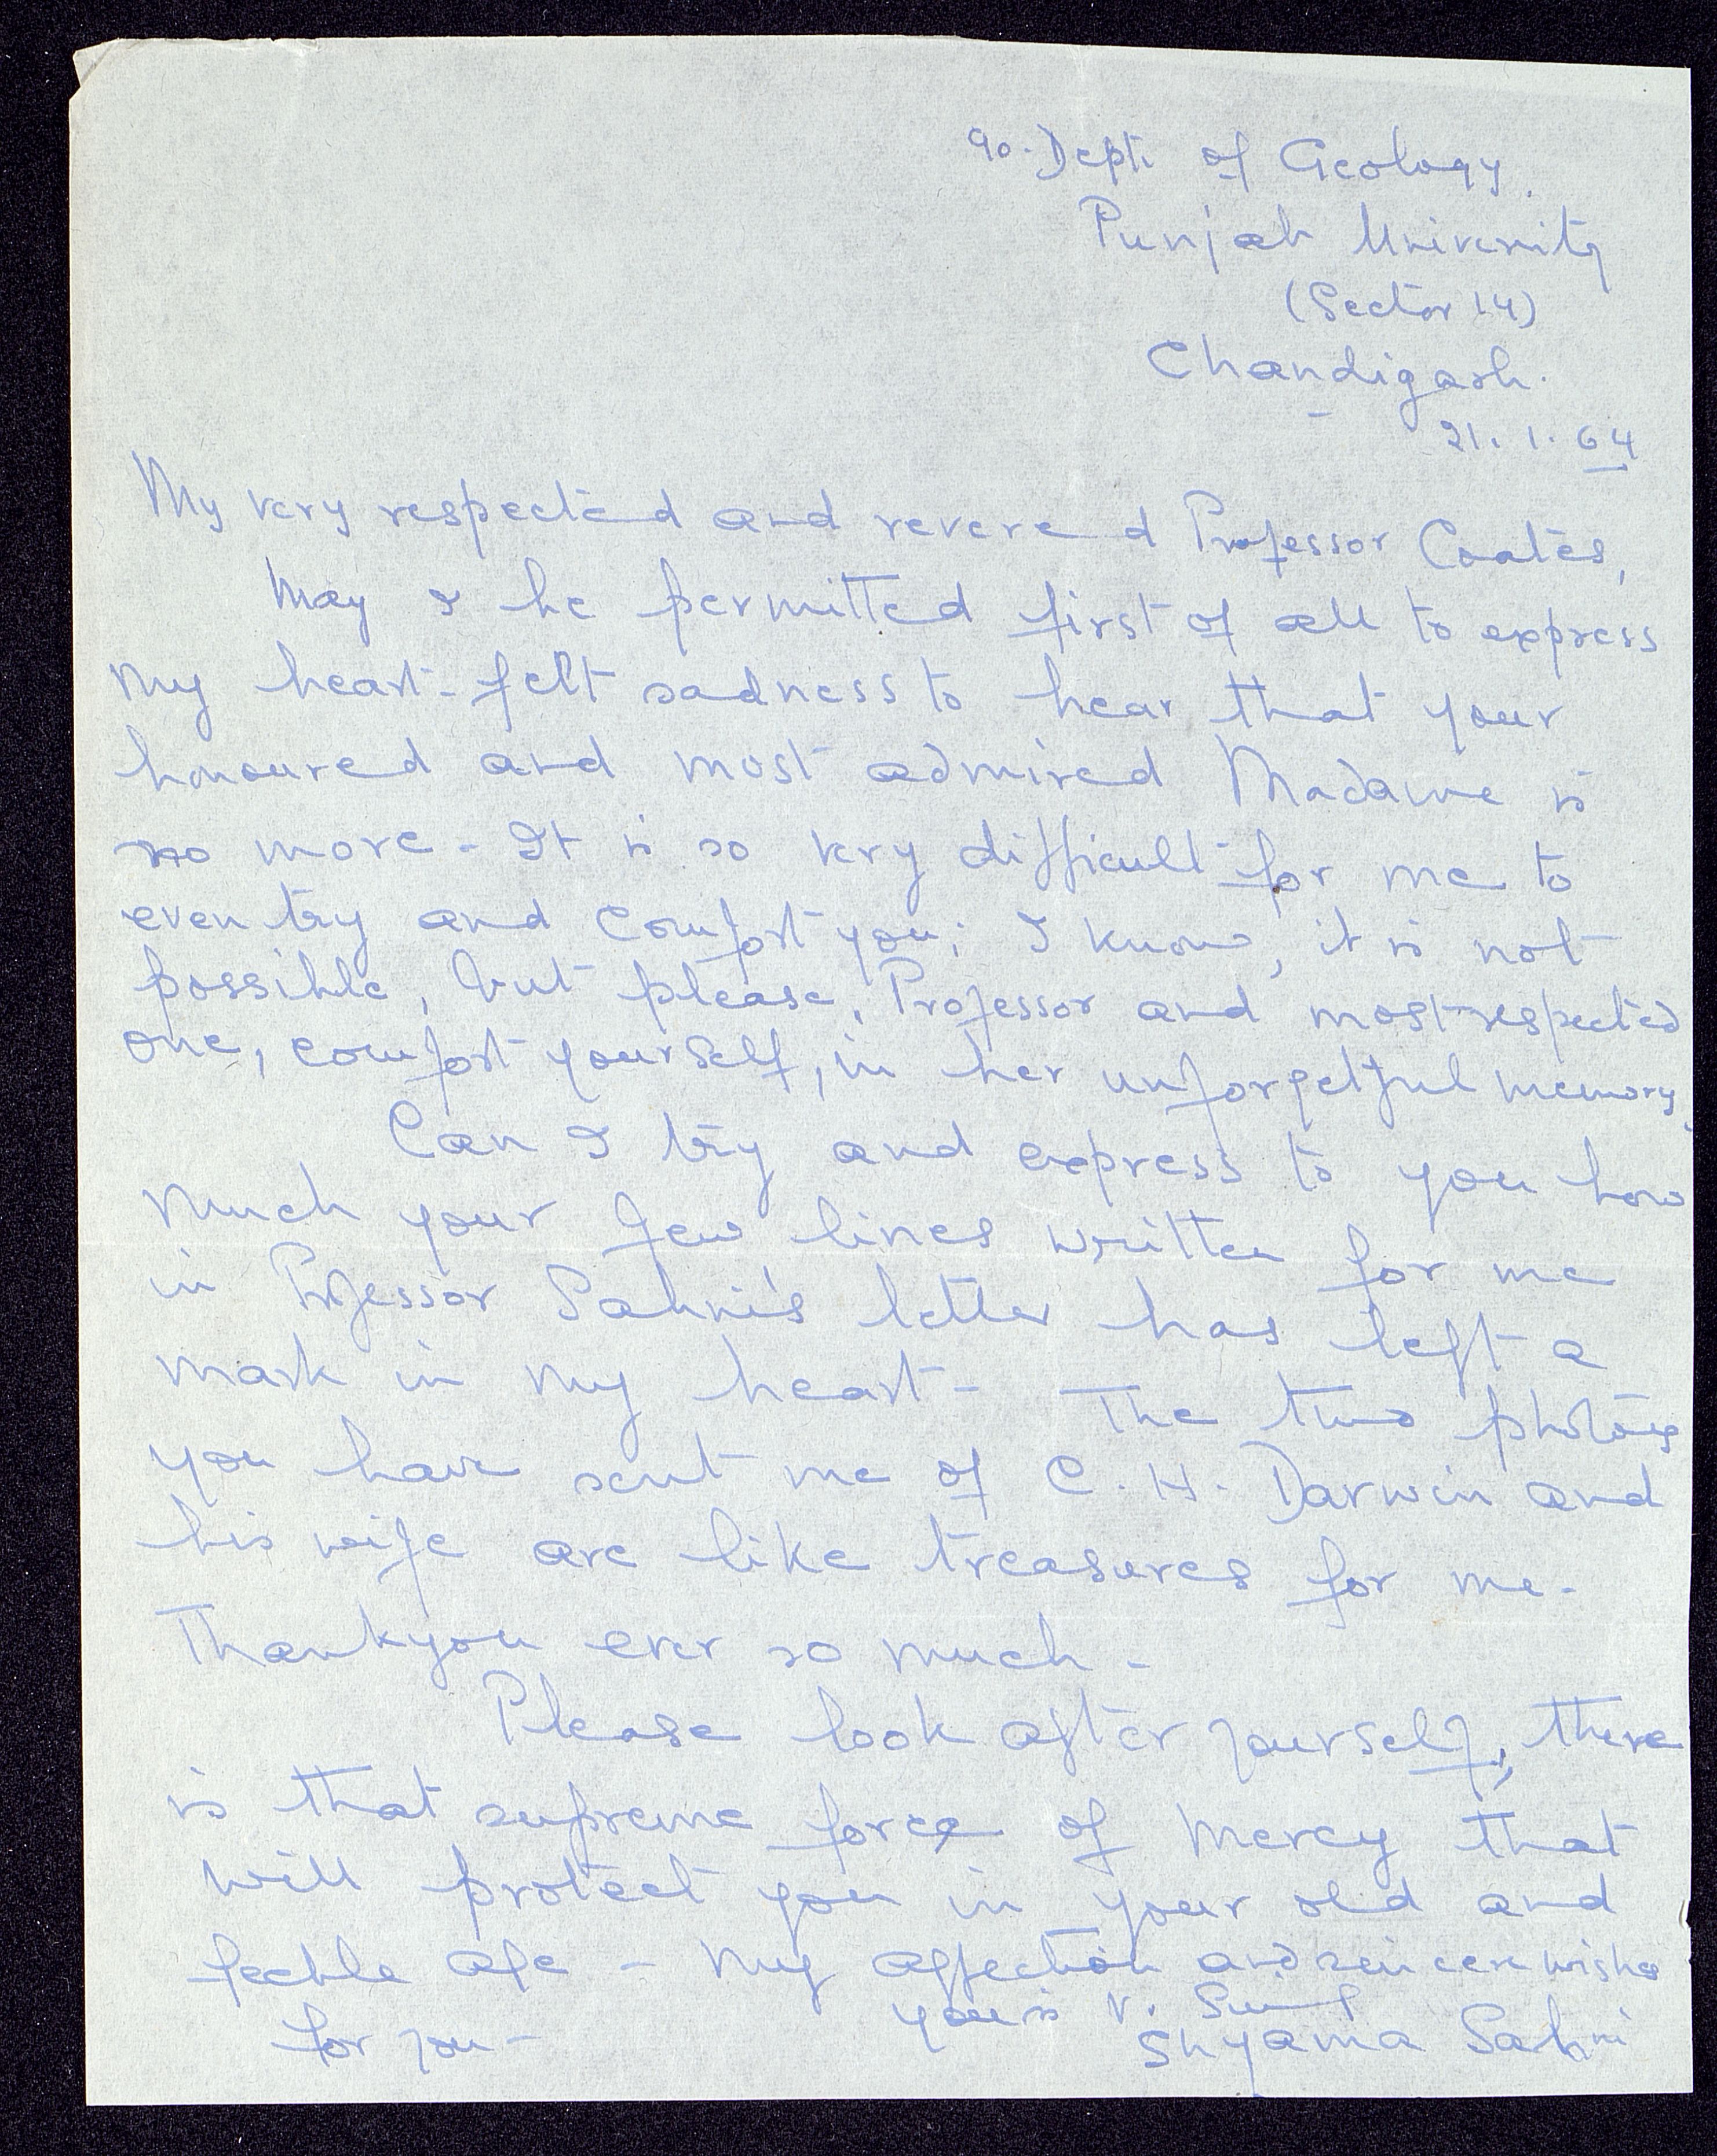 90. Dept. of Geology.
Punjab University
(Sector 14)
Chandigarh.
21. 1. 64
My very respected and revered Professor Coates,
May I be permitted first of all to express
my heart-felt sadness to hear that your
honoured and most admired Madame is
no more - It is so very difficult for me to
even try and comfort you; I know, it is not
possible, but please, Professor and most respected
one, comfort yourself, in her unforgetful memory.
Can I try and express to you how
much your few lines written for me
in Professor Sahni's letter has left a
mark in my heart - The two photos
you have sent me of C. H. Darwin and
his wife are like treasures for me -
Thankyou ever so much -
Please look after yourself, there
is that supreme force of Mercy that
will protect you in your old and
feeble age - My affection and sincere wishes
for you -
yours v.
Shyama Sahni